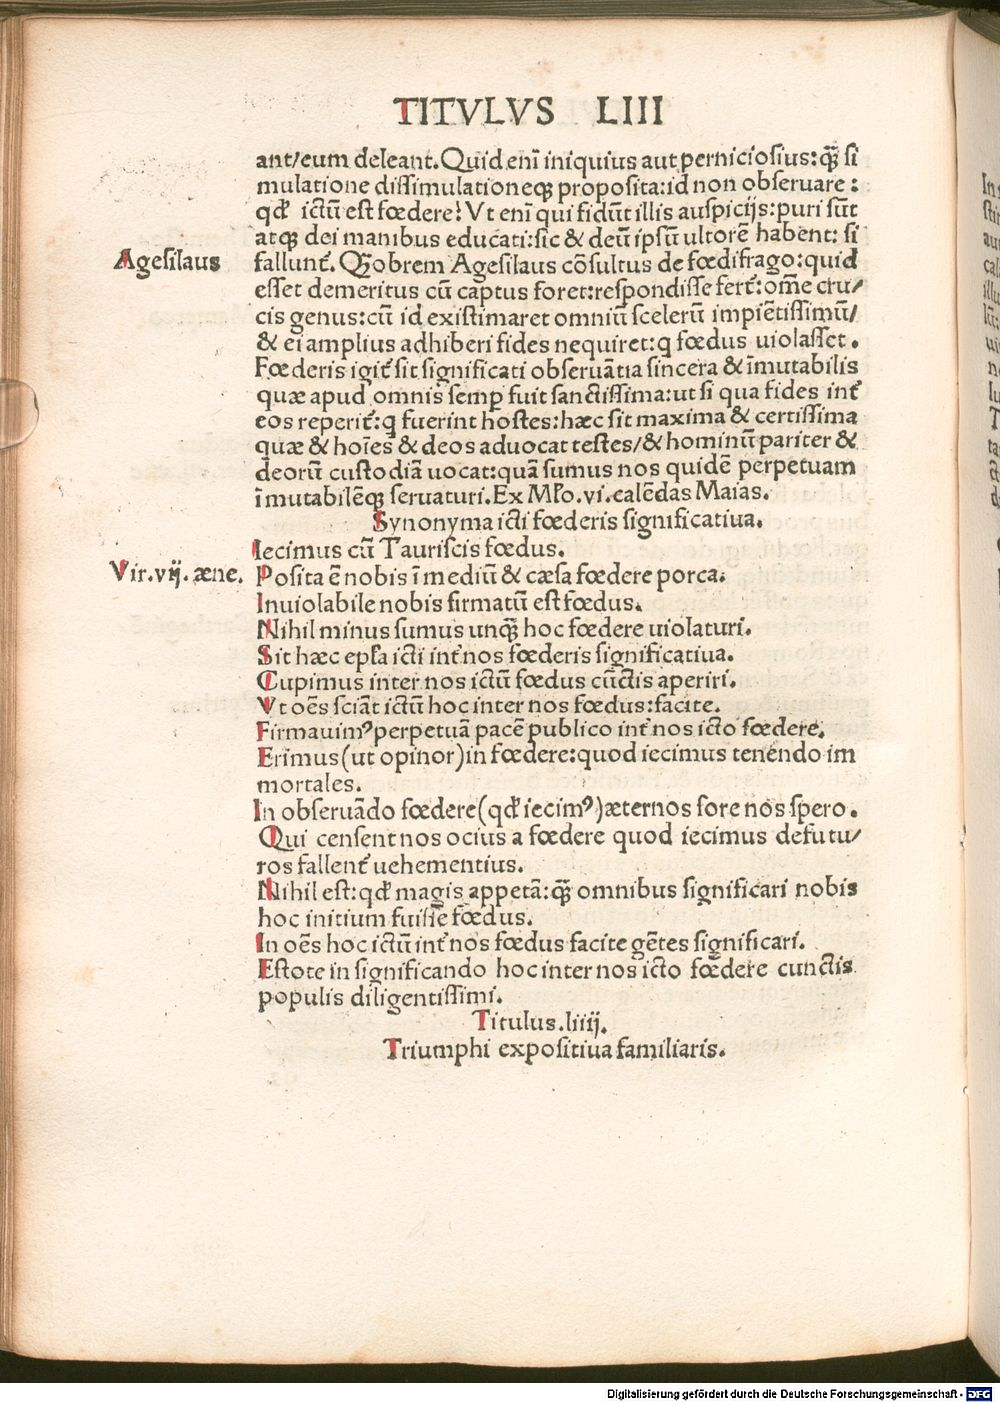 TITVLVS LIII
ant/eum deleant. Quid enĩ iniquius aut perniciosius: q̃ʒ si
mulatione dissimulationeqʒ proposita: id non obseruare:
qd' ictũ est fœdere! Vt enĩ qui fidũt illis auspicijs: puri sũt
atqʒ dei manibus educati: sic & deũ ipsũ ultorẽ habent: si
Agesilaus
fallunt̃. Qʒobrem Agesilaus cõsultus de fœdifrago: quid
esset demeritus cũ captus foret: respondisse fert̃: oẽm cru/
cis genus: cũ id existimaret omniũ scelerũ impiẽtissimũ/
& ei amplius adhiberi fides nequiret: q fœdus uiolasset.
Fœderis igit̃ sit significati obseruãtia sincera & ĩmutabilis
quæ apud omnis semp fuit sanctissima: ut si qua fides int̃
eos reperit̃: q fuerint hostes: hæc sit maxima & certissima
quæ & hoĩes & deos aduocat testes/& hominũ pariter &
deorũ custodiã uocat: quã sumus nos quidẽ perpetuam
ĩmutabilẽqʒ seruaturi. Ex Mło. vi. calẽdas Maias.
Synonyma icti fœderis significatiua.
Iecimus cũ Tauriscis fœdus.
Vir. vij. æne.
Posita ẽ nobis ĩ mediũ & cæsa fœdere porca.
Inuiolabile nobis firmatũ est fœdus.
Nihil minus sumus unq̃ʒ hoc fœdere uiolaturi.
Sit hæc epła icti int̃ nos fœderis significatiua.
Cupimus inter nos ictũ fœdus cũctis aperiri.
Vt oẽs sciãt ictũ hoc inter nos fœdus: facite.
Firmauimꝰ perpetuã pacẽ publico int̃ nos icto fœdere.
Erimus (ut opinor) in fœdere: quod iecimus tenẽdo im
mortales.
In obseruãdo fœdere (qd' iecimꝰ) æternos fore nos spero.
Qui censent nos ocius a fœdere quod iecimus defutu/
ros fallent̃ uehementius.
Nihil est: qd' magis appetã: q̃ʒ omnibus significari nobis
hoc initium fuisse fœdus.
In oẽs hoc ictũ int̃ nos fœdus facite gẽtes significari.
Estote in significando hoc inter nos icto fœdere cunctis
populis diligentissimi.
Titulus. liiij.
Triumphi expositiua familiaris.
Digitalisierung gefördert durch die Deutsche Forschungsgemeinschaft - DFG